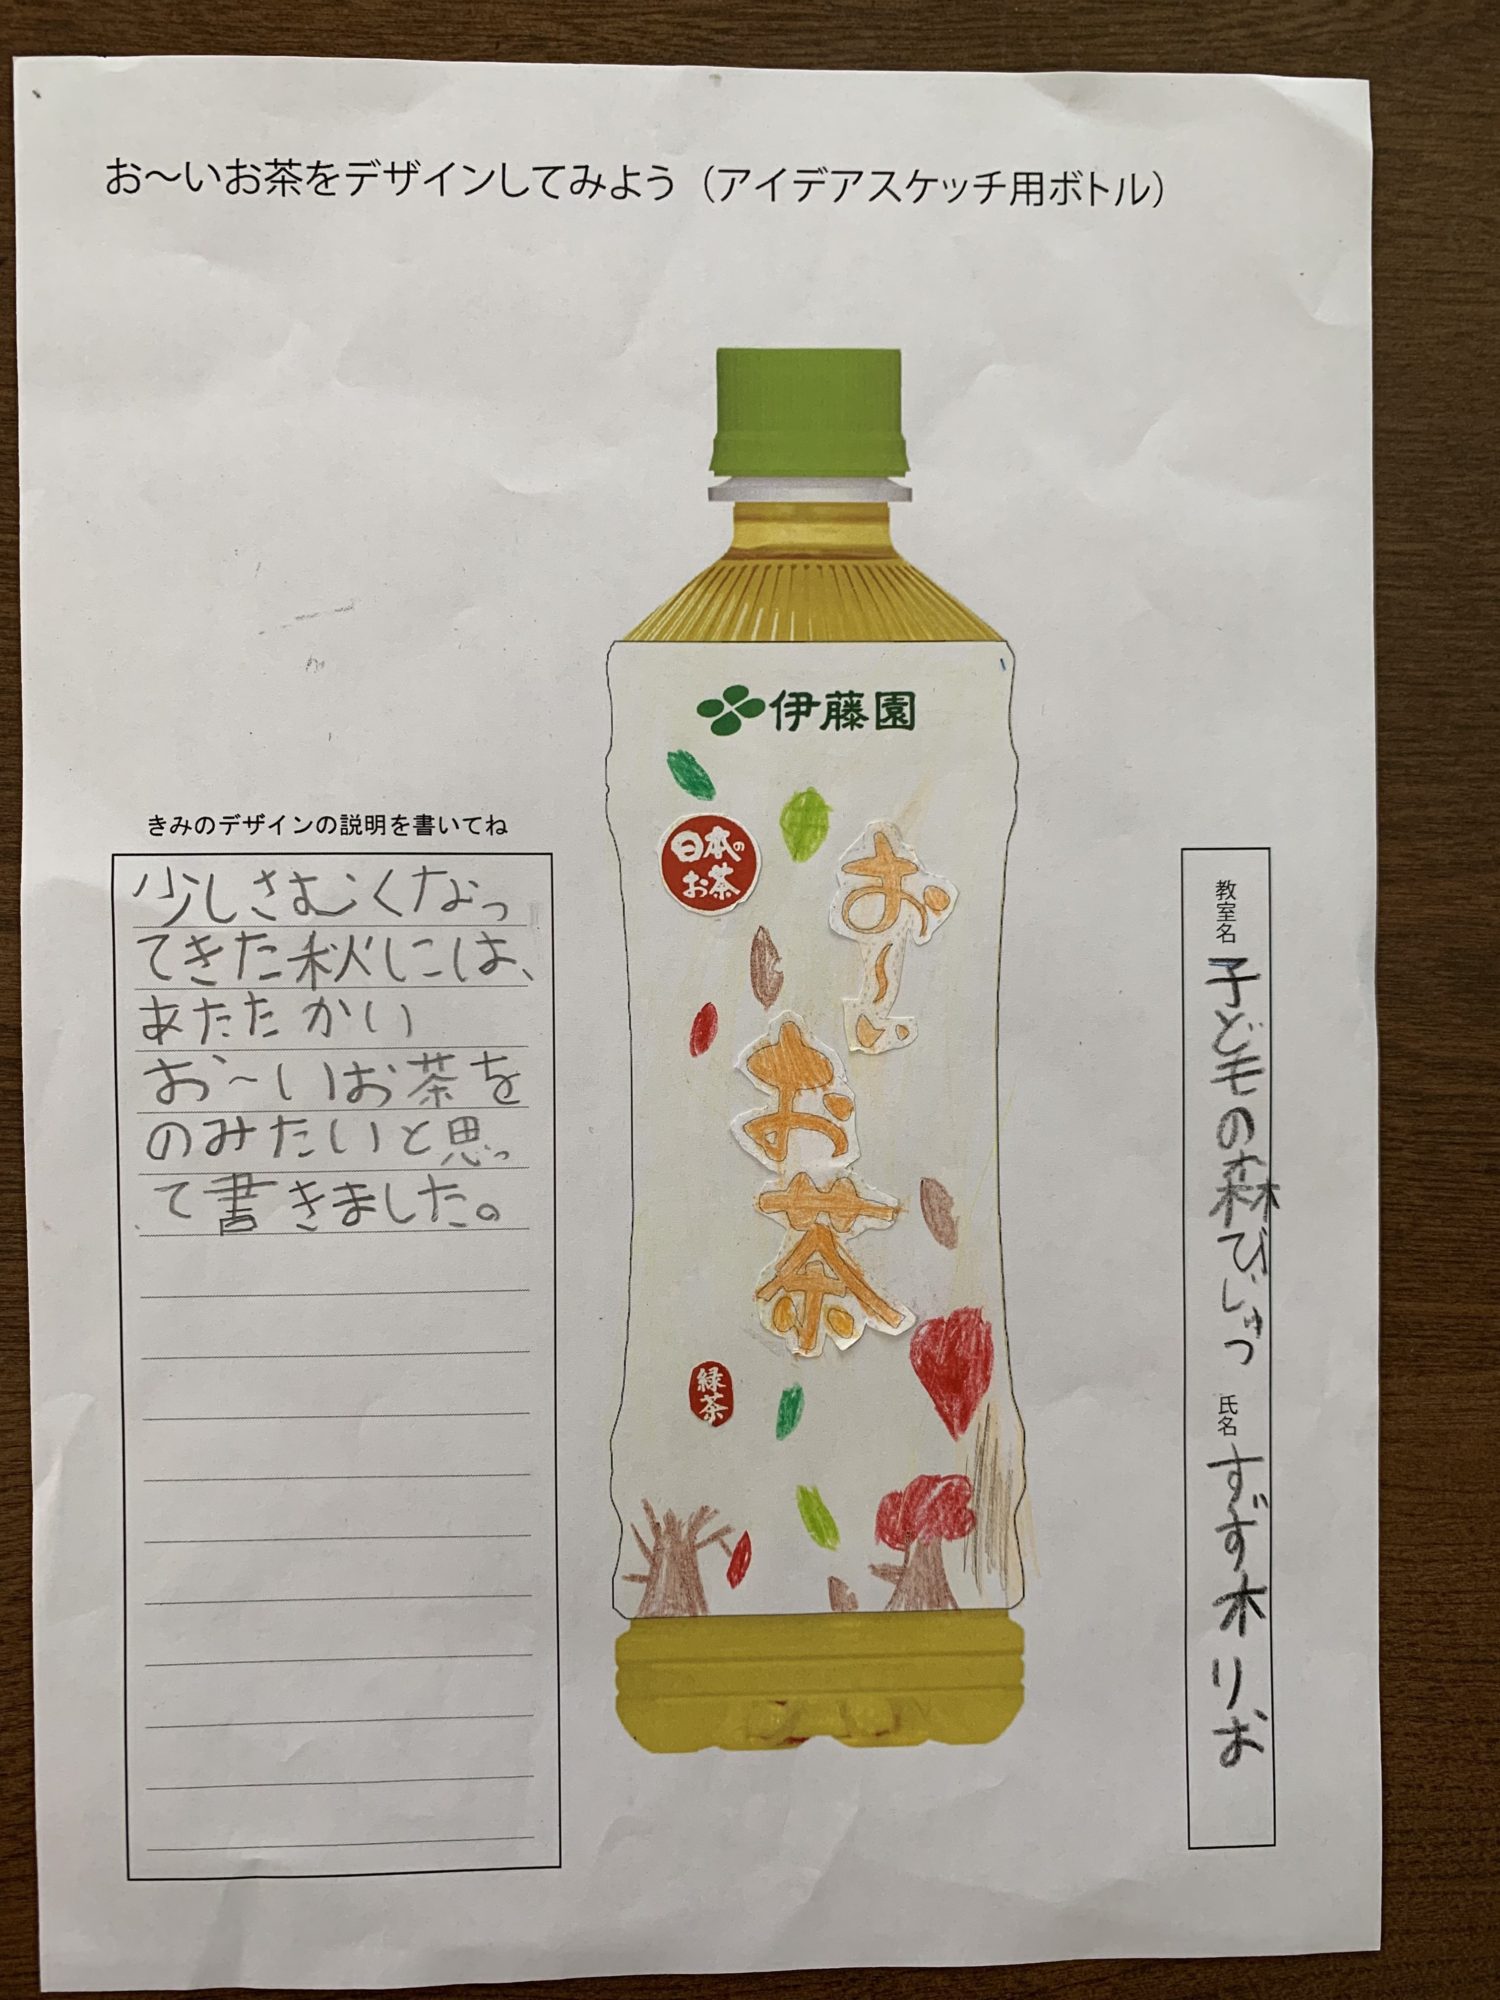 お～いお茶をデザインしてみよう（アイデアスケッチ用ボトル）
伊藤園
日本の
お茶
お～い
お茶
緑茶
きみのデザインの説明を書いてね
少しさむくなっ
てきた秋には、
あたたかい
お～いお茶を
のみたいと思っ
て書きました。
教室名 子どもの森びじゅつ
氏名 すず木りお